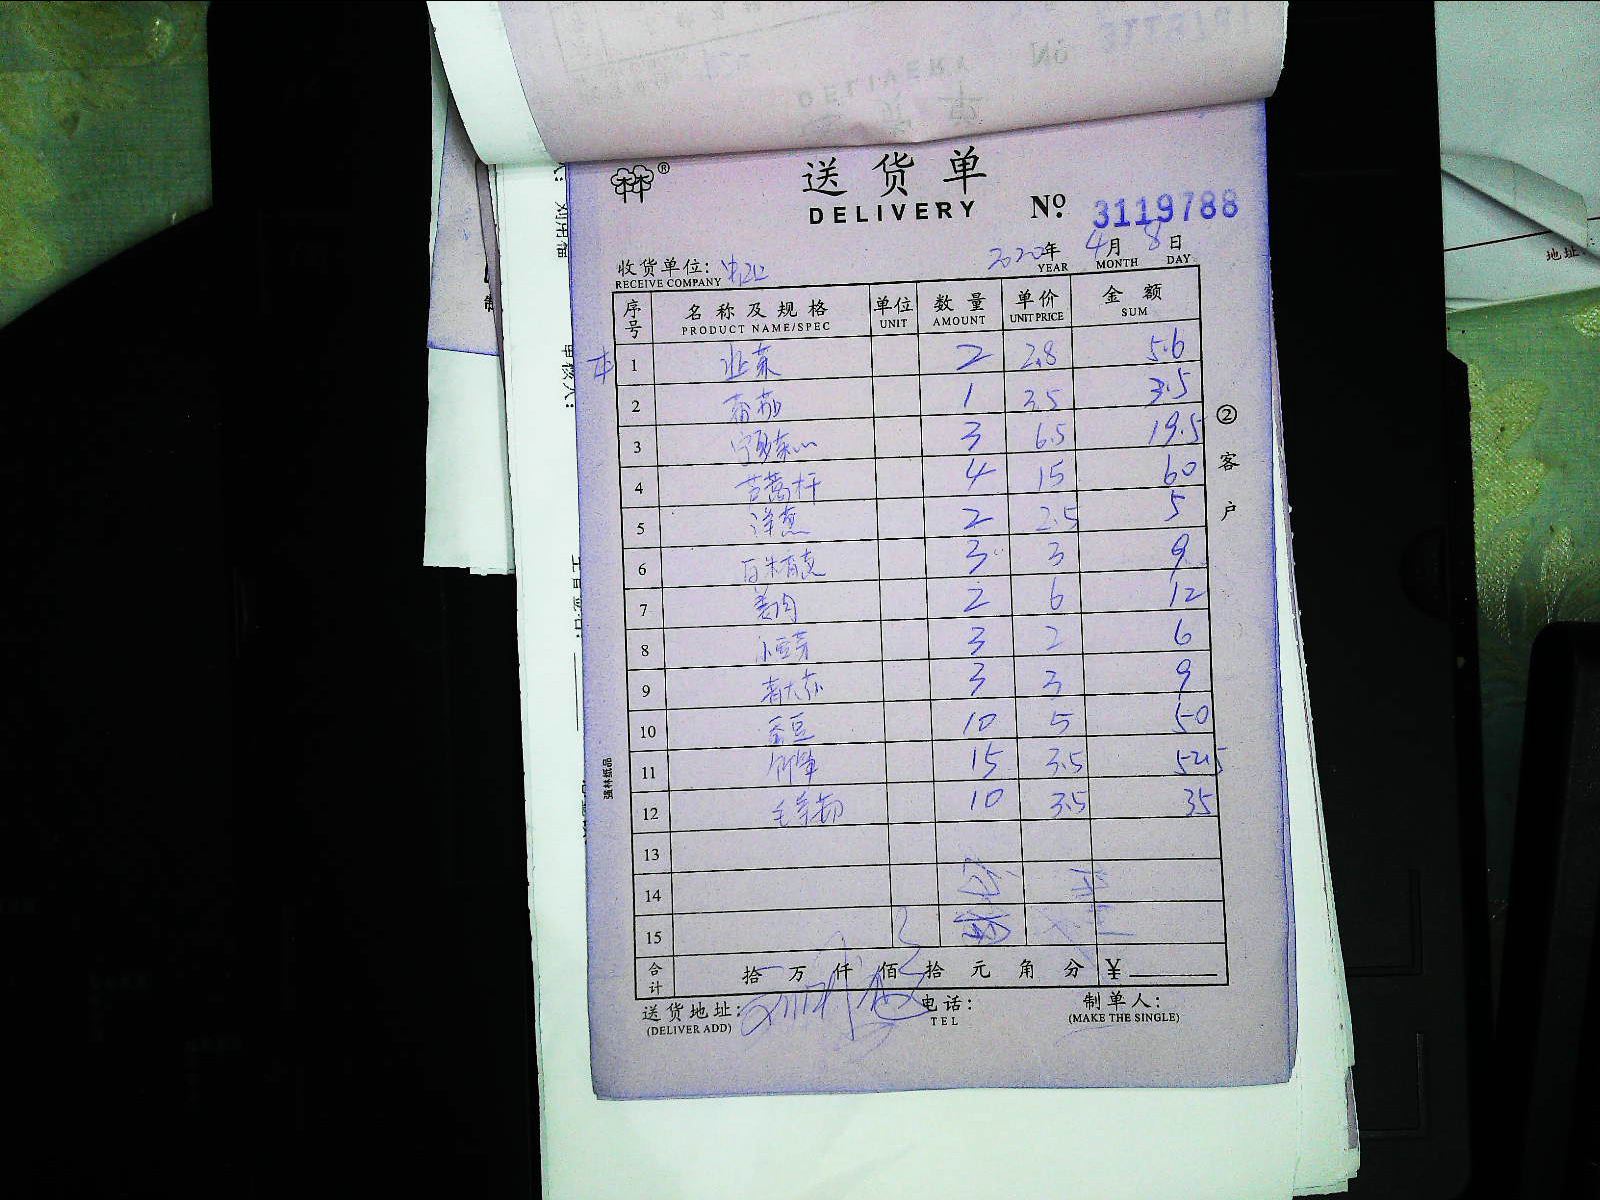 送货单
DELIVERY No. 3119788
2020年 4月 8日
YEAR MONTH DAY
收货单位:
RECEIVE COMPANY
序号 名称及规格 单位 数量 单价 金额
PRODUCT NAME/SPEC UNIT AMOUNT UNIT PRICE SUM
1 韭菜 2 2.8 5.6
2 番茄 1 3.5 3.5
3 宁夏菜心 3 6.5 19.5
4 茼蒿杆 4 15 60
5 洋葱 2 2.5 5
6 3 3 9
7 姜肉 2 6 12
8 小豆芽 3 2 6
9 青大 3 3 9
10 蚕豆 10 5 50
11 15 3.5 52.5
12 10 3.5 35
13
14
15
合计 拾 万 仟 佰 拾 元 角 分 ¥
送货地址: 电话: 制单人:
(DELIVER ADD) TEL (MAKE THE SINGLE)
②客户
强林纸品
地址: